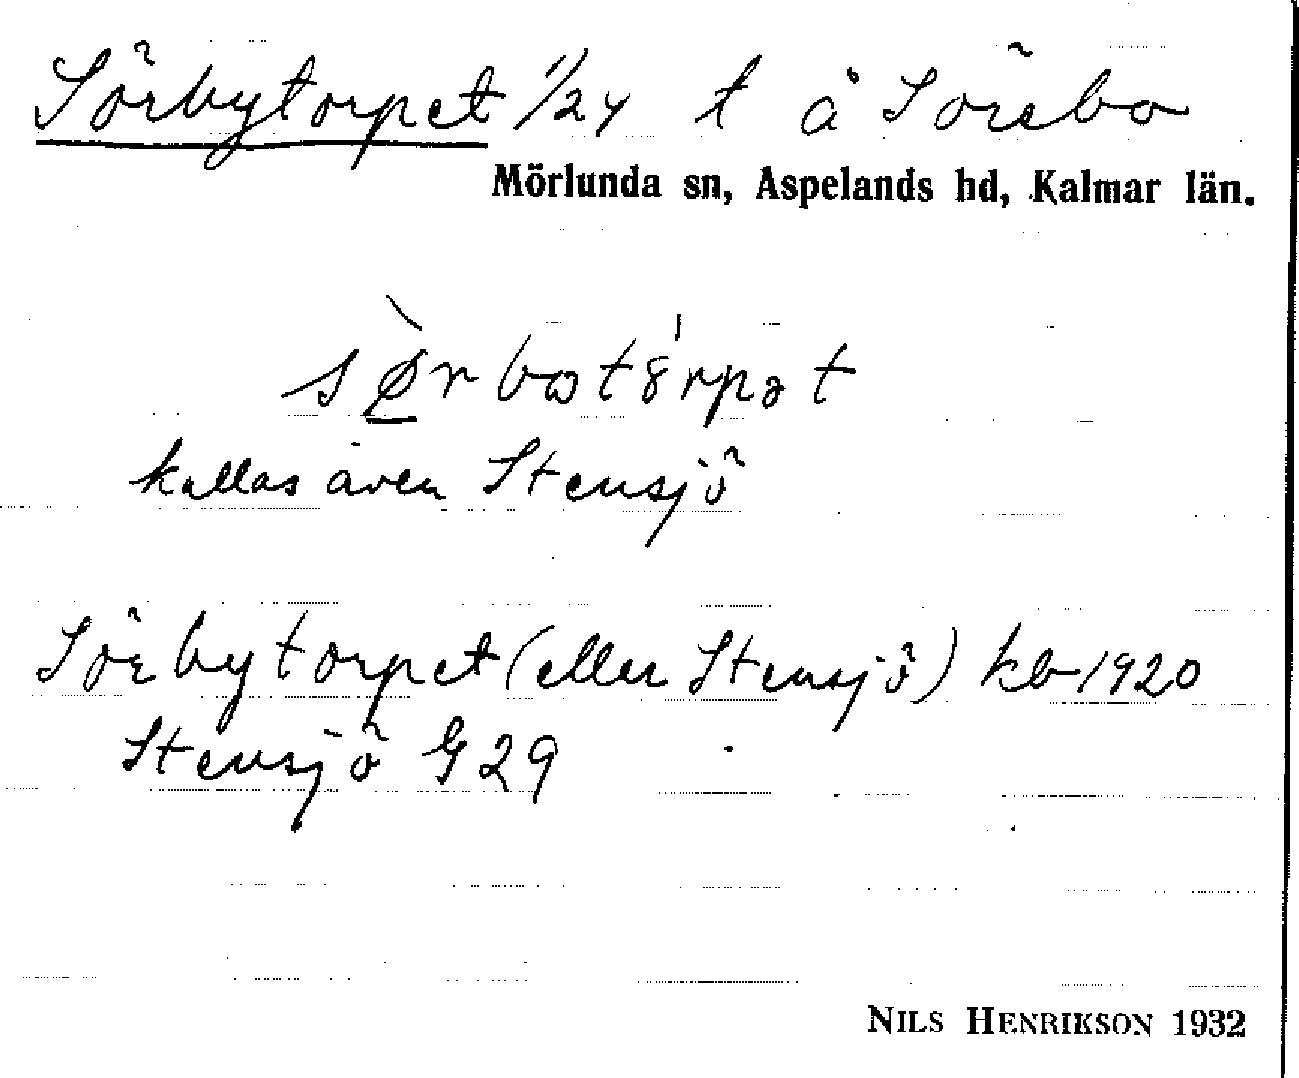 Sörbytorpet 1/24 t å Sörebo
Mörlunda sn, Aspelands hd, Kalmar län.
kallas även Stensjö
Sörbytorpet (eller Stensjö) kb 1920
Stensjö G 29
NILS HENRIKSON 1932